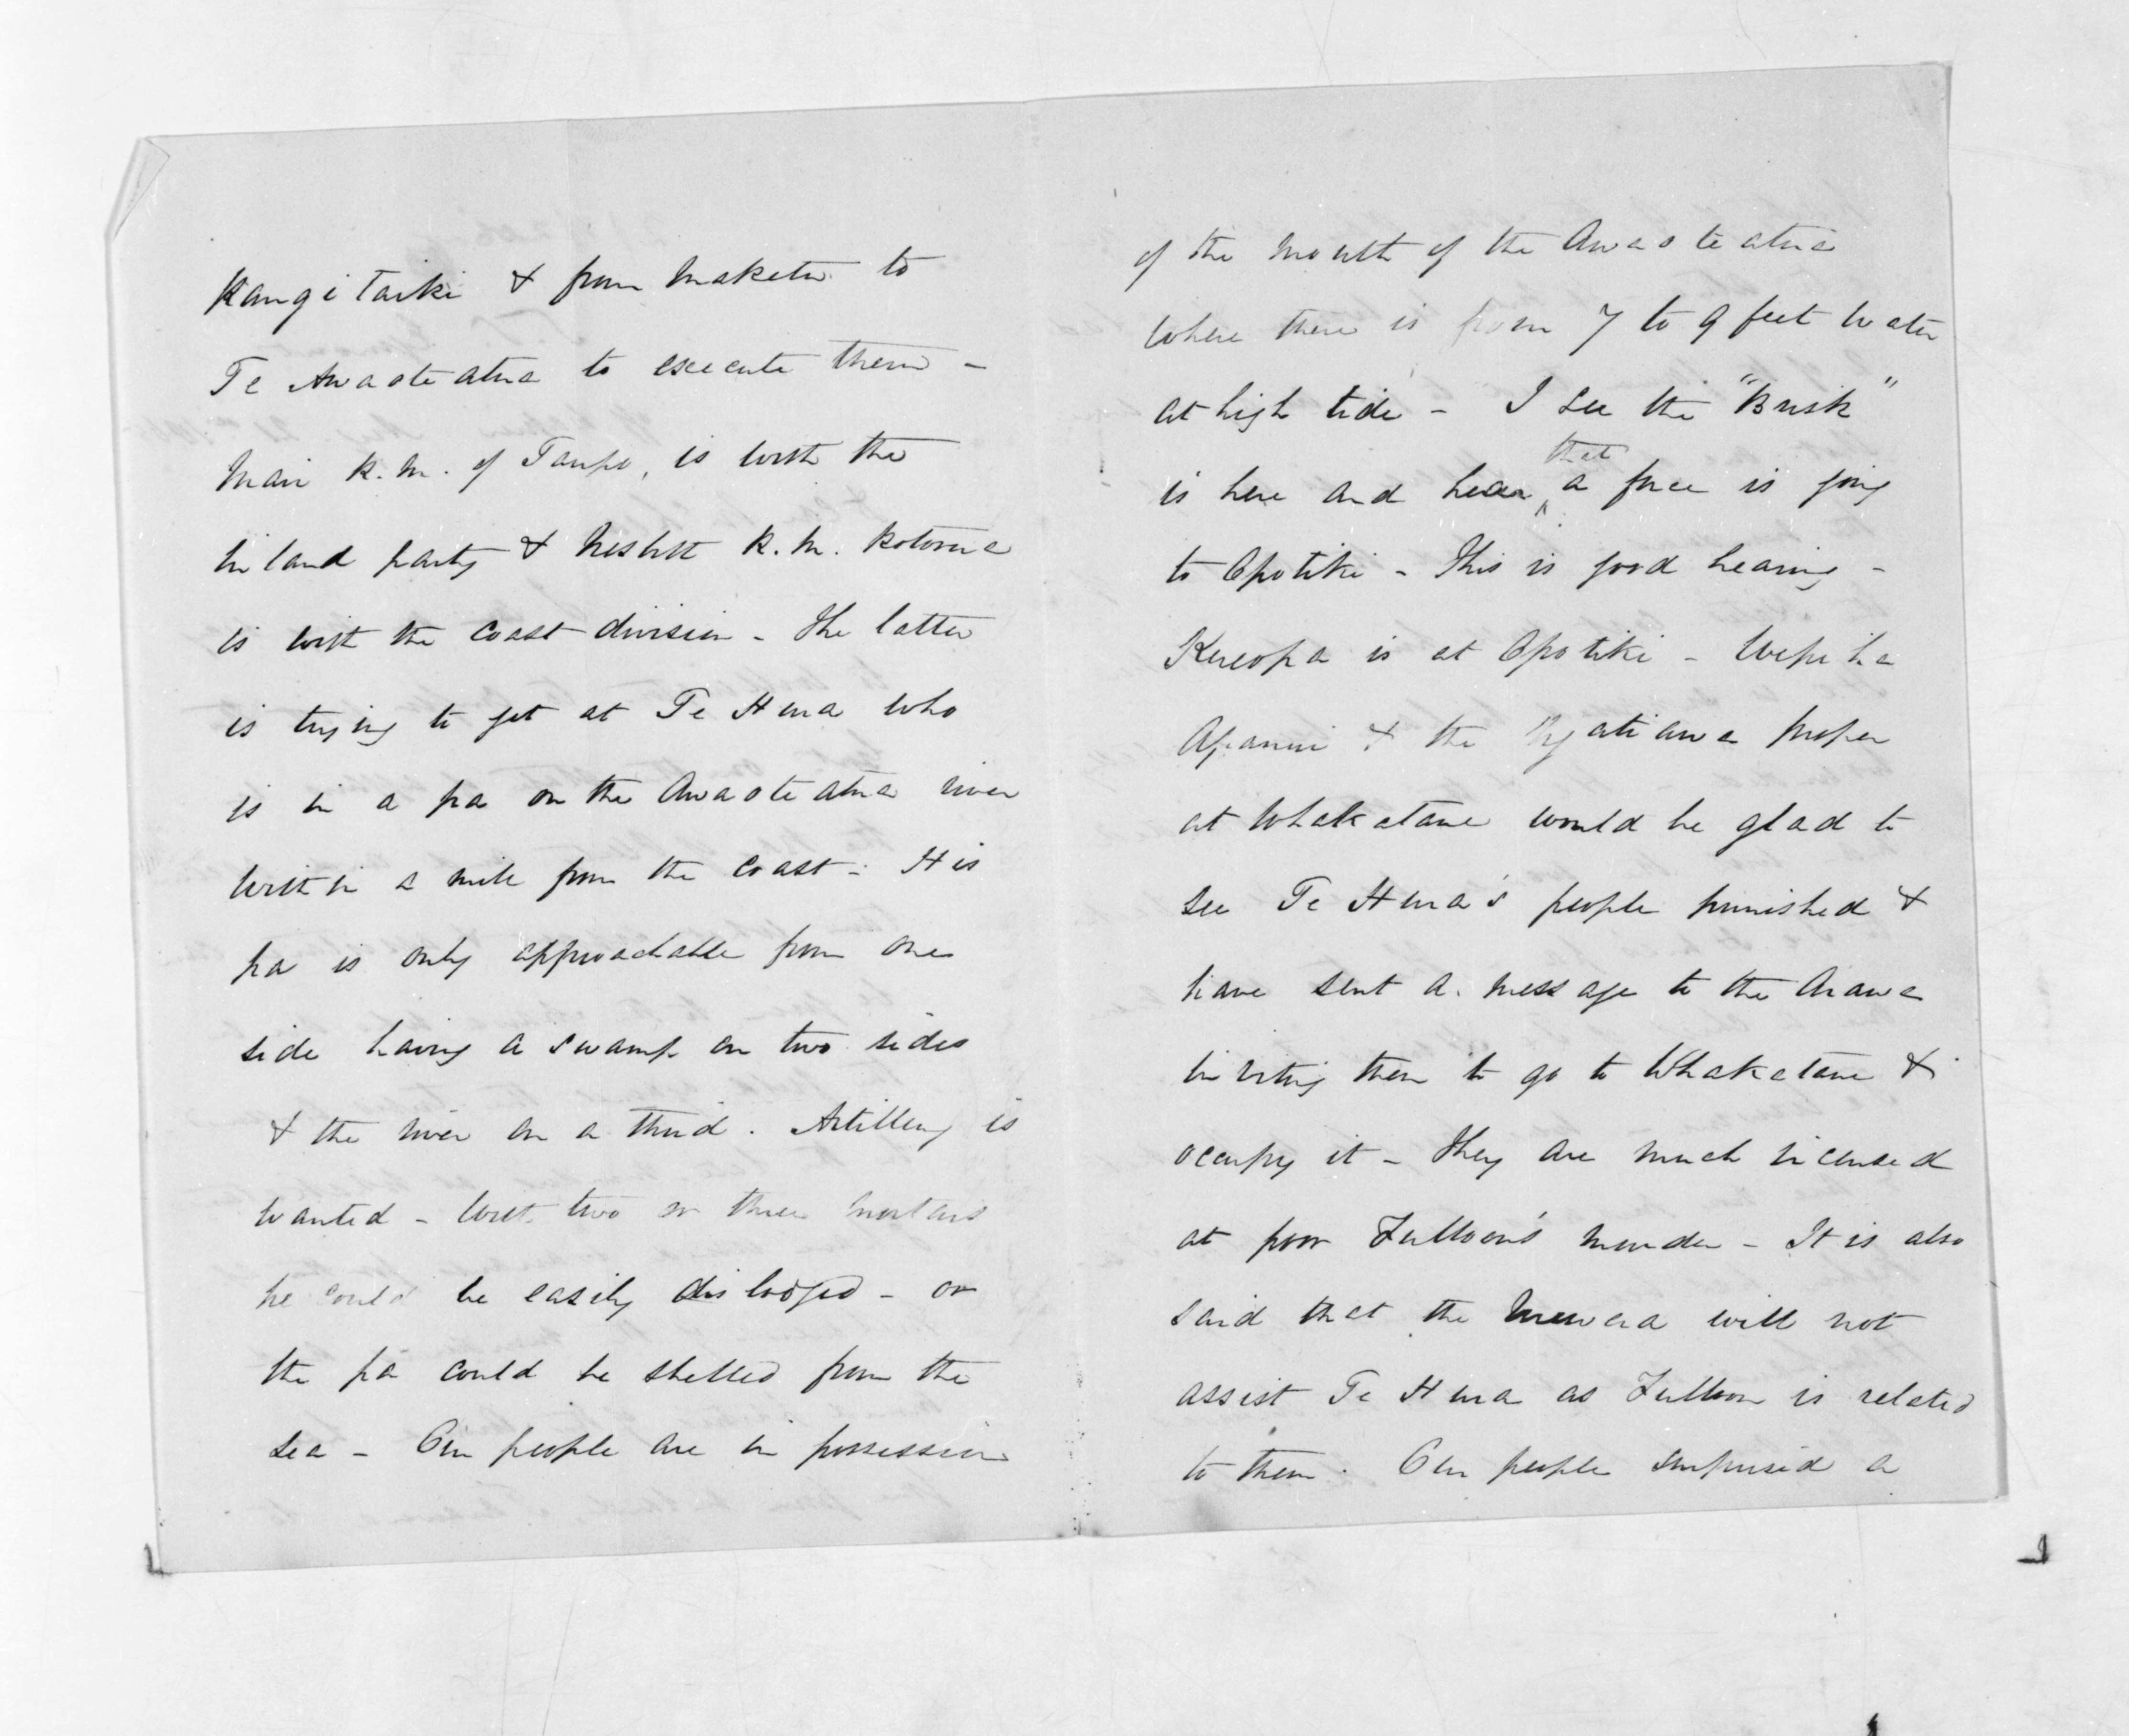 Rangitaiki & from Maketu to
Te Awaoteatua to execute them -
Mair R.M. of Taupo, is with the
inland party & Nesbitt R.M. Rotorua
is with the coast division - The latter
is trying to get at Te Hura who
is in a pa on the Awaoteatua river
within a mile from the coast - His
pa is only approachable from one
side having a swamp on two sides
& the river on a third. Artillery is
wanted - With two or three mortars
he could be easily dislodged - or
the pa could be shelled from the
sea - Our people are in possession
of the mouth of the Awaoteatua
where there is from 7 to 9 feet water
at high tide - I see the "Brisk"
is here and hear that a force is going
to Opotiki - This is good hearing -
Kereopa is at Opotiki - Wepiha
Apanui & the Ngatiawa proper
at Whakatane would be glad to
see Te Hura's people punished &
have sent a message to the Arawa
inviting them to go to Whakatane &
occupy it - They are much incensed
at poor Fulloon's murder - It is also
said that the Urewera will not
assist Te Hura as Fulloon is related
to them. Our people surprised a